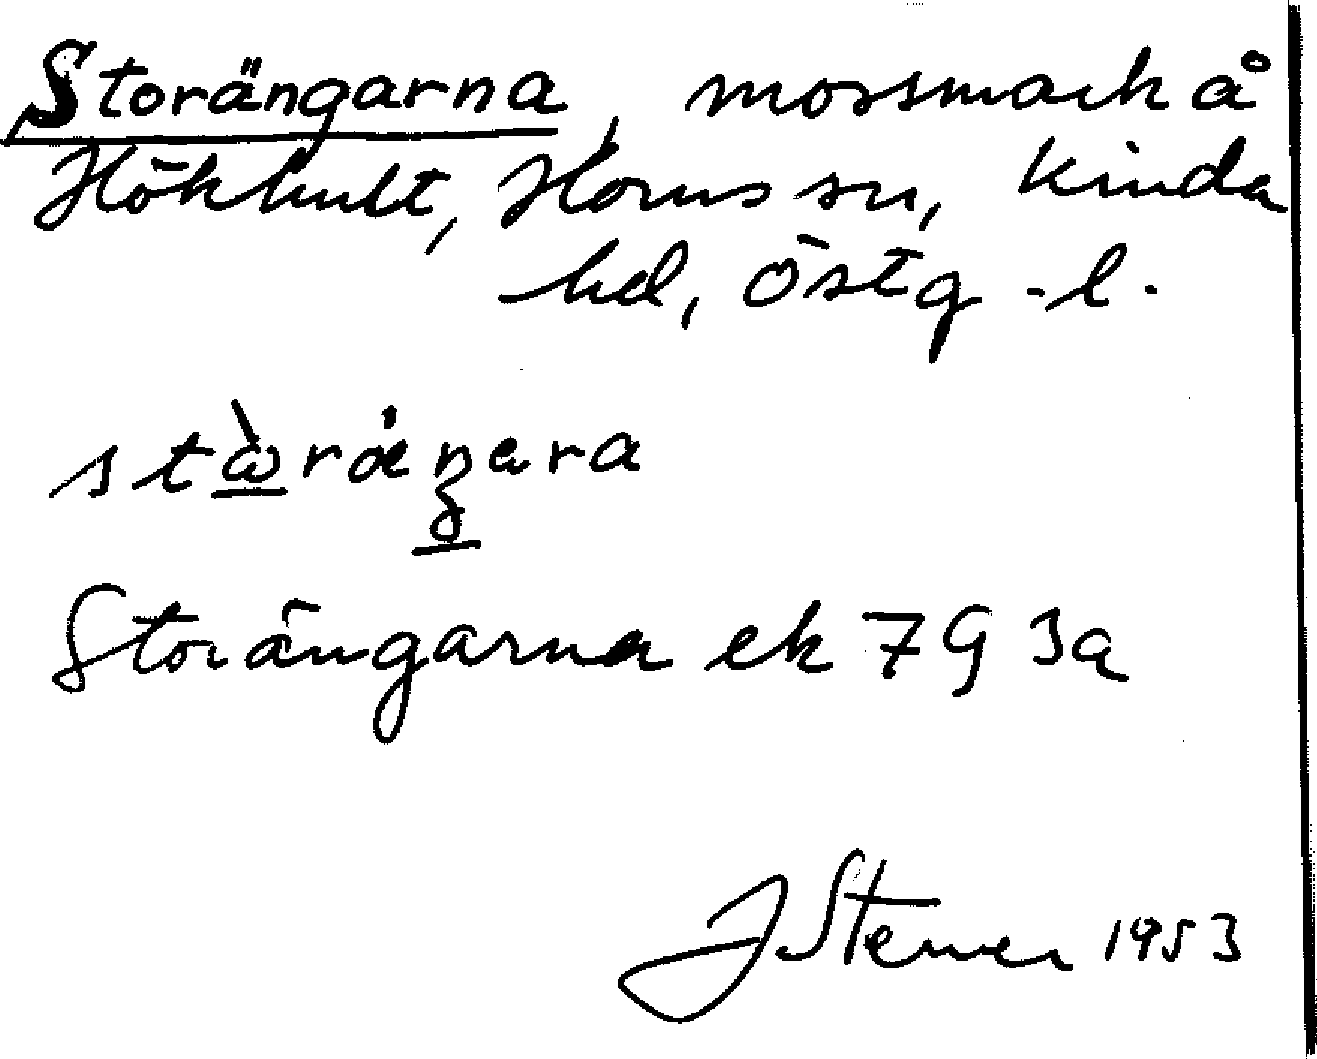 Storängarna, mossmark å
Hökhult, Horns sn, Kinda
hd, Östg.-l.
Storängarna ek 7G 3a
J Stener 1953